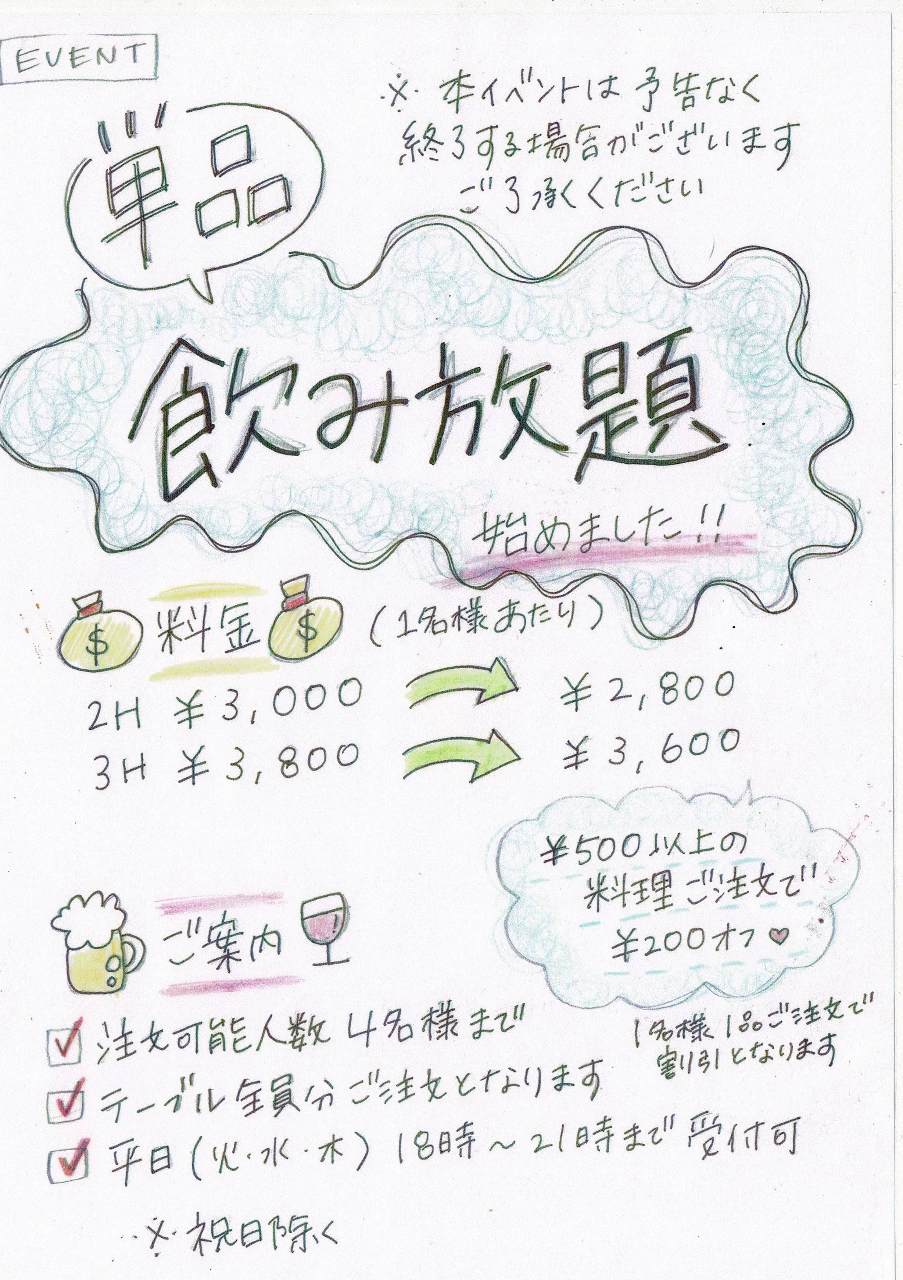 EVENT
※ 本イベントは 予告なく
終了する場合がございます
ご了承ください
単品
飲み放題
始めました!!
料金 (1名様あたり)
2H ¥3,000 ¥2,800
3H ¥3,800 ¥3,600
¥500以上の
料理ご注文で
¥200オフ♡
1名様1品ご注文で
割引となります
ご案内
注文可能人数 4名様まで
テーブル全員分ご注文となります
平日(火・水・木) 18時〜21時まで受付可
※祝日除く